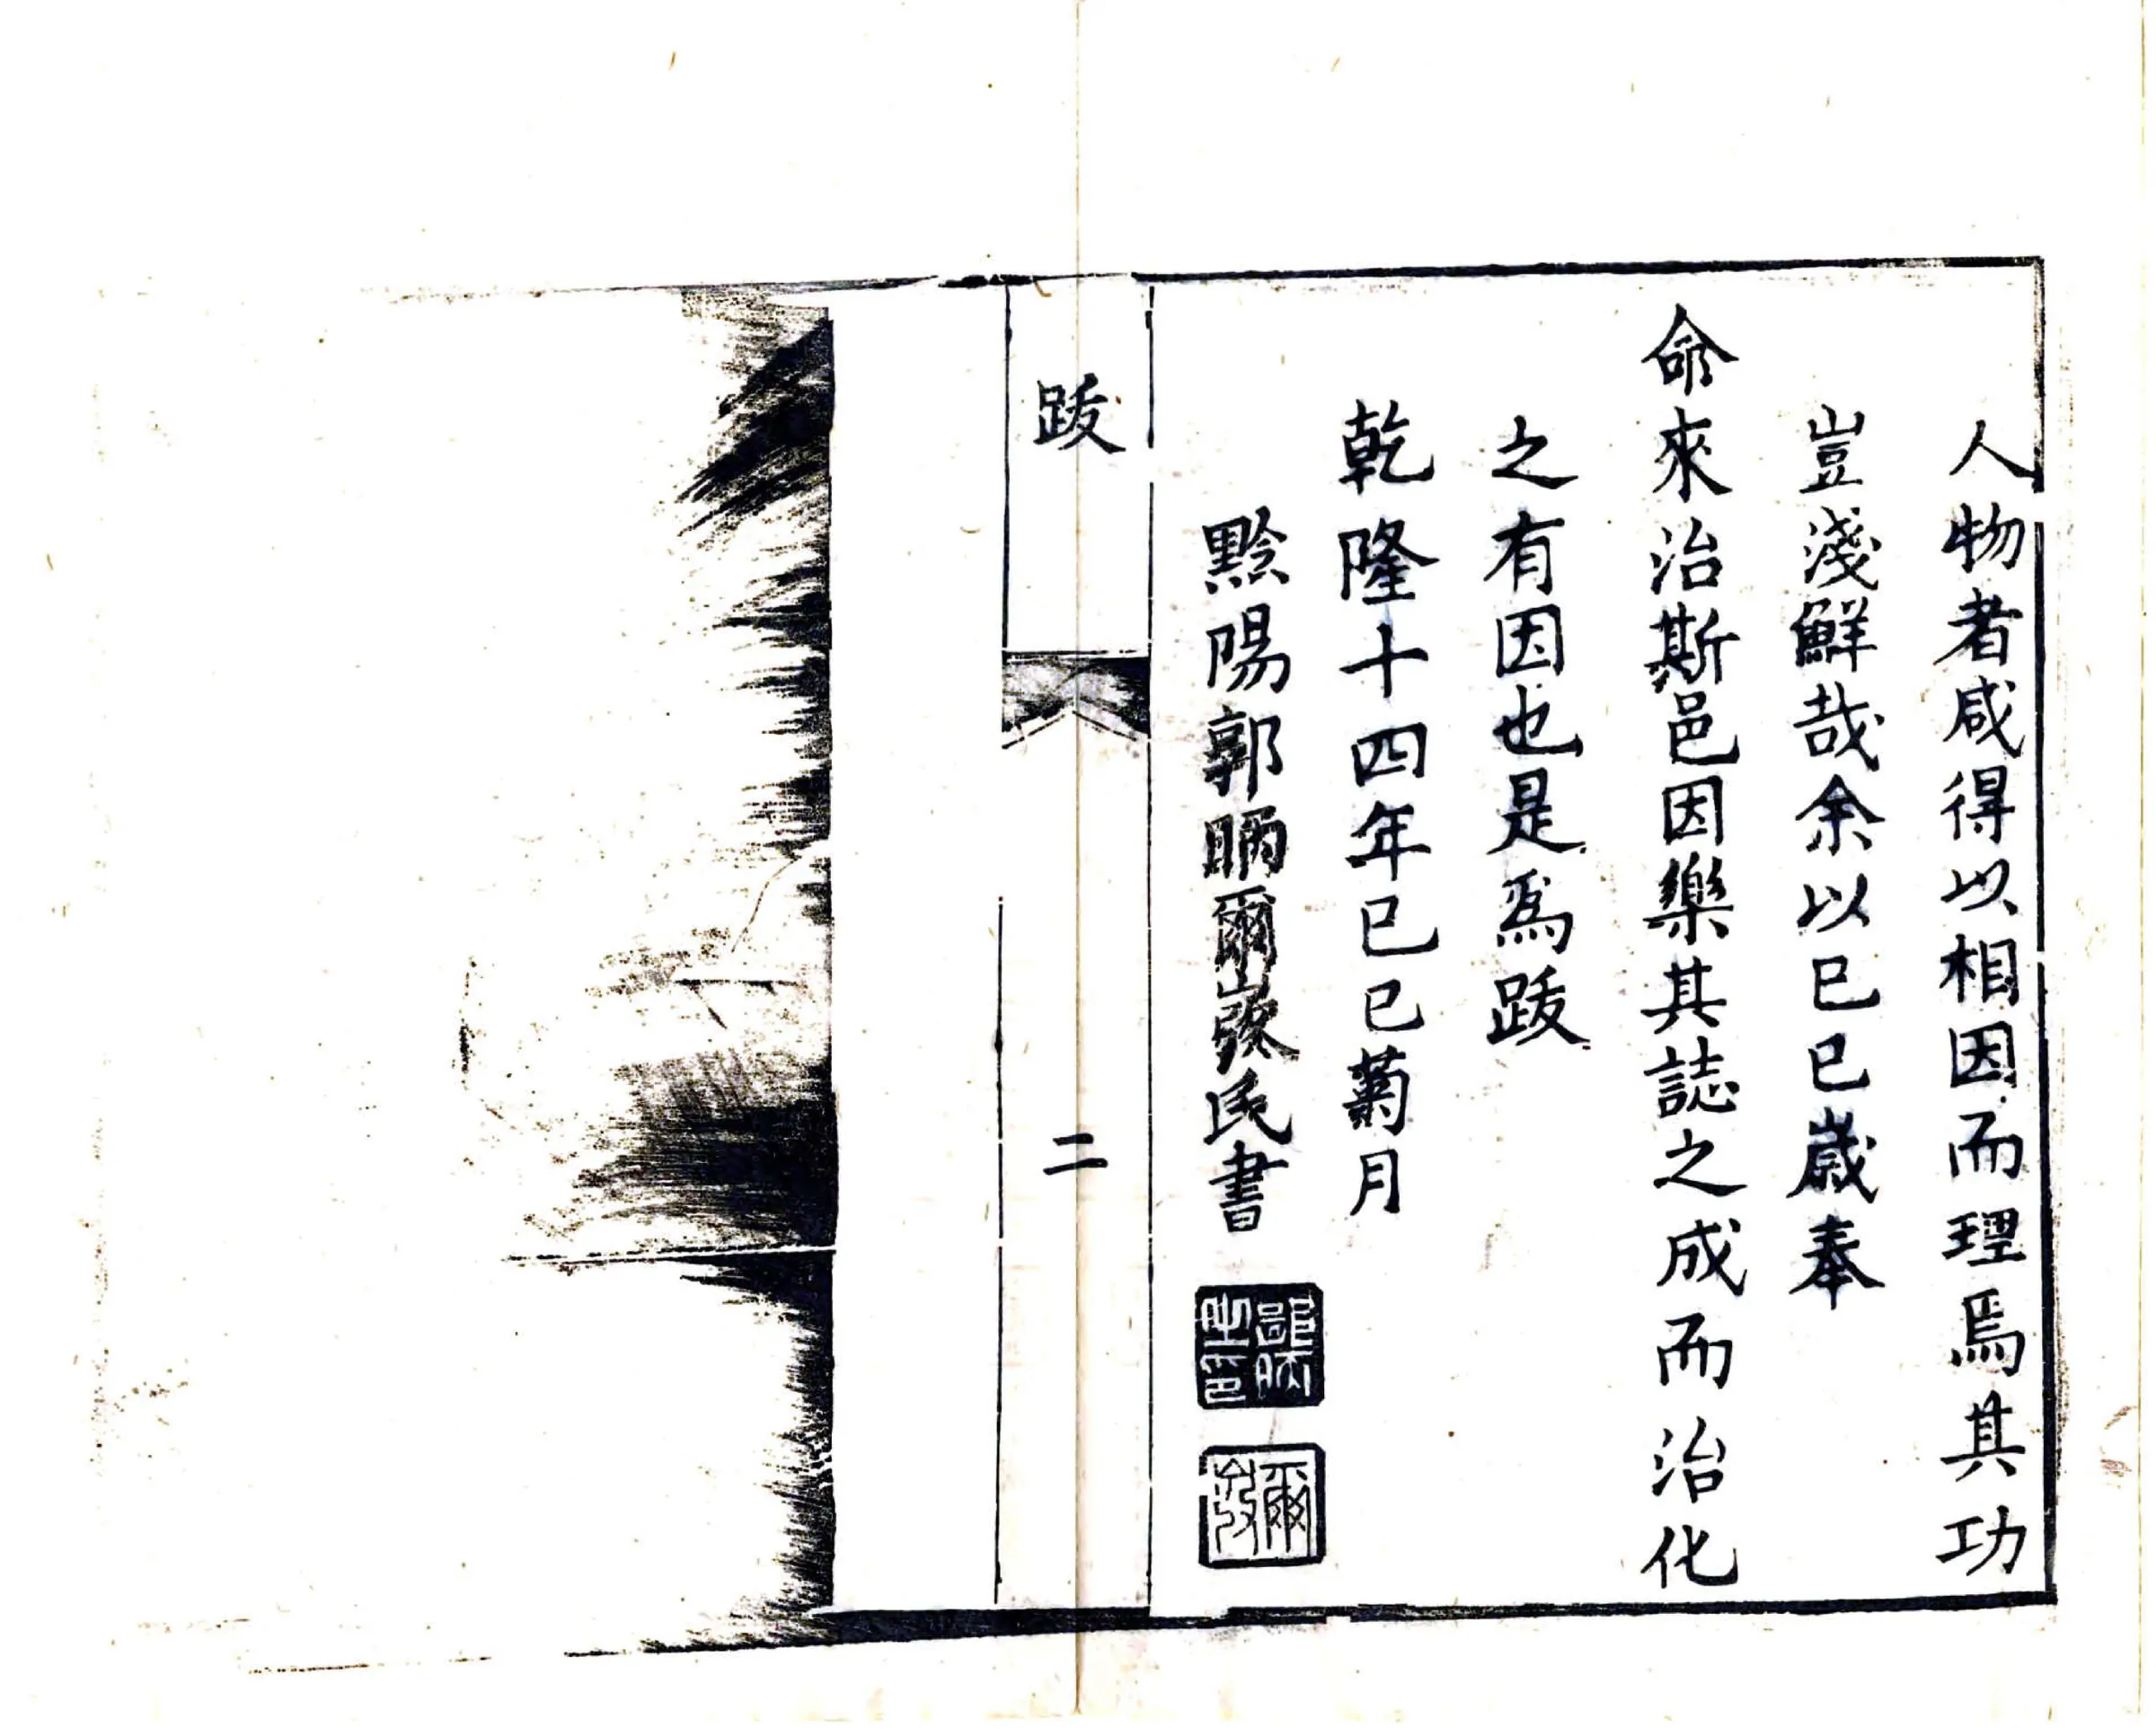 人物者咸得以相因而理焉其功
豈淺鮮哉余以己巳歲奉
命來治斯邑因樂其誌之成而治化
之有因也是爲跋
乾隆十四年己巳菊月
黔陽郭昞爾氏書
跋
二